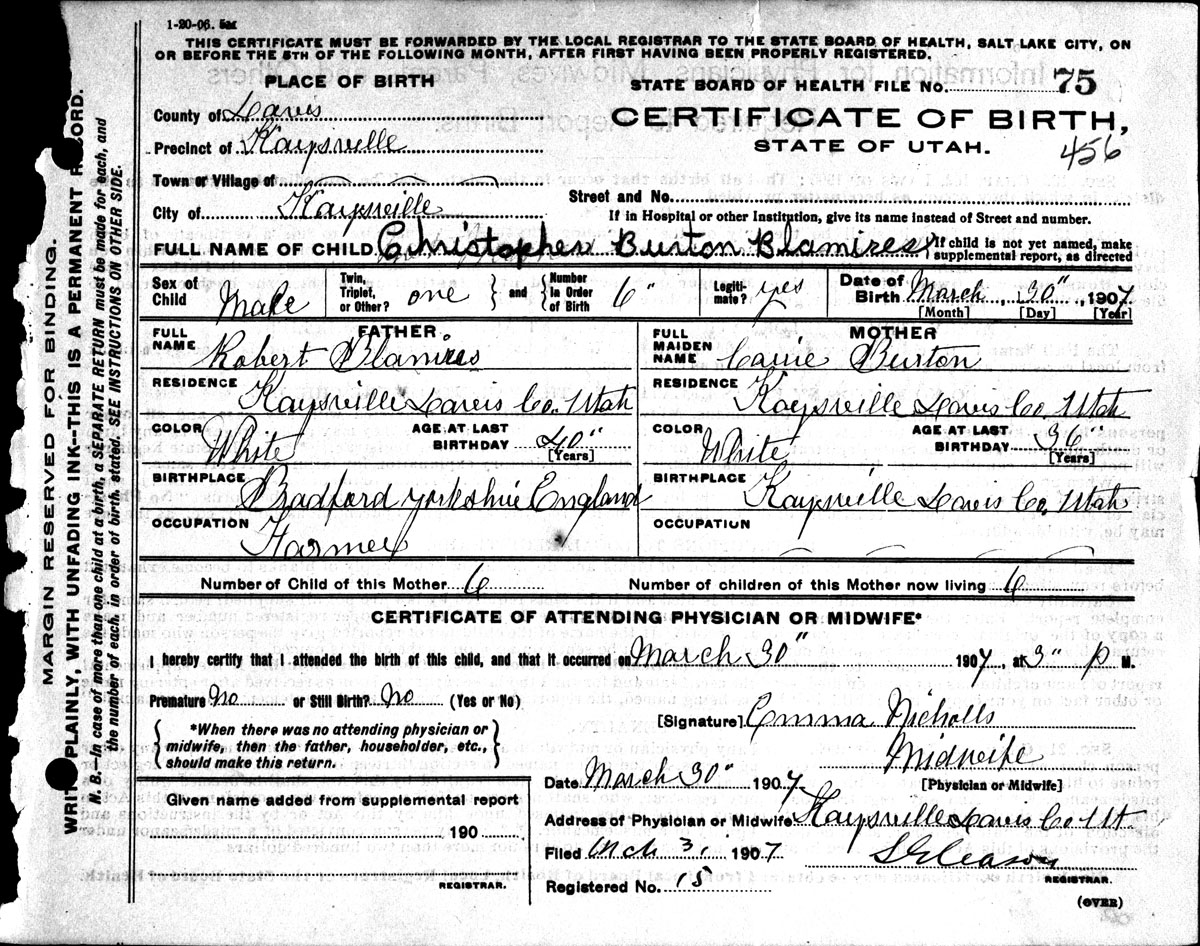 1-20-06.
THIS CERTIFICATE MUST BE FORWARDED BY THE LOCAL REGISTRAR TO THE STATE BOARD OF HEALTH, SALT LAKE CITY, ON
OR BEFORE THE 5TH OF THE FOLLOWING MONTH, AFTER FIRST HAVING BEEN PROPERLY REGISTERED.
PLACE OF BIRTH
STATE BOARD OF HEALTH FILE NO. 75
County of Davis
CERTIFICATE OF BIRTH,
Precinct of Kaysville
STATE OF UTAH.
456
Town or Village of
Street and No.
City of Kaysville
If in Hospital or other Institution, give its name instead of Street and number.
FULL NAME OF CHILD Christopher Burton Blamires } If child is not yet named, make supplemental report, as directed
Sex of Child Male Twin, Triplet, or Other? one } and { Number in Order of Birth 6" Legitimate? yes Date of Birth March 30", 1907
[Month] [Day] [Year]
FATHER MOTHER
FULL NAME Robert Blamires FULL MAIDEN NAME Carrie Burton
RESIDENCE Kaysville Davis Co. Utah RESIDENCE Kaysville Davis Co. Utah
COLOR White AGE AT LAST BIRTHDAY 40" [Years] COLOR White AGE AT LAST BIRTHDAY 36" [Years]
BIRTHPLACE Bradford Yorkshire England BIRTHPLACE Kaysville Davis Co. Utah
OCCUPATION Farmer OCCUPATION
Number of Child of this Mother 6 Number of children of this Mother now living 6
CERTIFICATE OF ATTENDING PHYSICIAN OR MIDWIFE*
I hereby certify that I attended the birth of this child, and that it occurred on March 30" 1907, at 3" P M.
Premature No or Still Birth? No (Yes or No)
[Signature] Emma Nicholls
{ *When there was no attending physician or
midwife, then the father, householder, etc.,
should make this return. }
Midwife
[Physician or Midwife]
Date March 30" 1907
Given name added from supplemental report
190
REGISTRAR.
Address of Physician or Midwife Kaysville Davis Co Ut
Filed Mch 31 1907
Gleason
REGISTRAR.
Registered No. 15
(OVER)
MARGIN RESERVED FOR BINDING.
WRITE PLAINLY, WITH UNFADING INK--THIS IS A PERMANENT RECORD.
N. B.--In case of more than one child at a birth, a SEPARATE RETURN must be made for each, and
the number of each, in order of birth, stated. SEE INSTRUCTIONS ON OTHER SIDE.